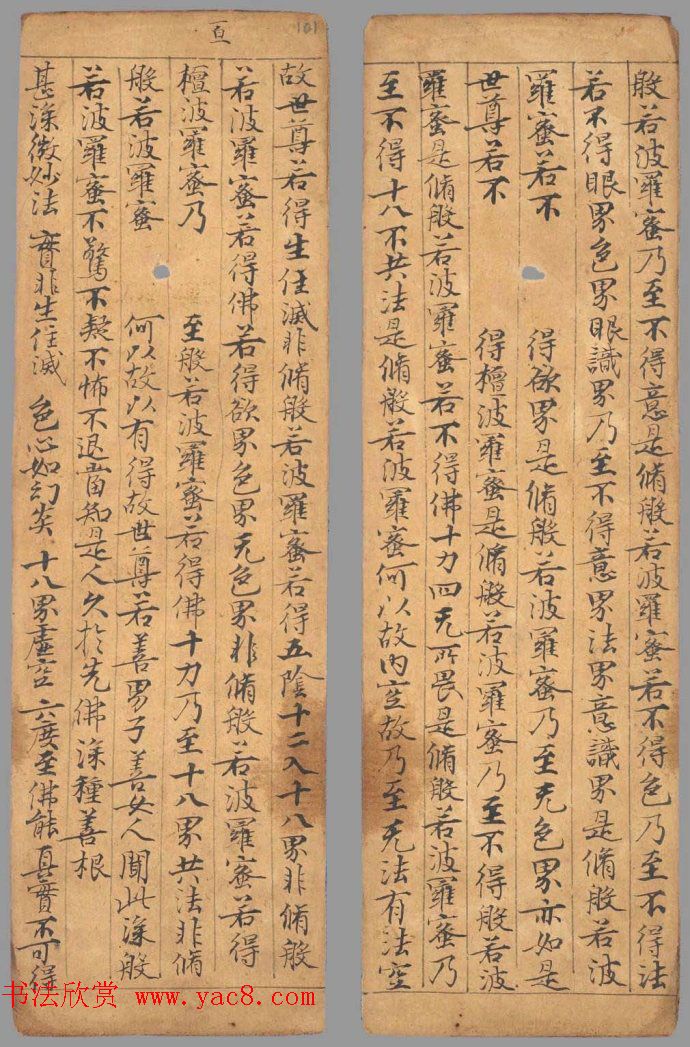 般若波羅蜜乃至不得意是脩般若波羅蜜若不得色乃至不得法
若不得眼界色界眼識界乃至不得意界法界意識界是脩般若波
羅蜜若不得欲界是脩般若波羅蜜乃至无色界亦如是
世尊若不得檀波羅蜜是脩般若波羅蜜乃至不得般若波
羅蜜是脩般若波羅蜜若不得佛十力四无所畏是脩般若波羅蜜乃
至不得十八不共法是脩般若波羅蜜何以故內空故乃至无法有法空
百
101
故世尊若得生住滅非脩般若波羅蜜若得五陰十二入十八界非脩般
若波羅蜜若得佛若得欲界色界无色界非脩般若波羅蜜若得
檀波羅蜜乃至般若波羅蜜若得佛十力乃至十八界共法非脩
般若波羅蜜何以故以有得故世尊若善男子善女人聞此深般
若波羅蜜不驚不疑不怖不退當知是人久於先佛深種善根
甚深微妙法 實非生住滅 色心如幻炎 十八界虛空 六度至佛能 真實不可得
书法欣赏 www.yac8.com